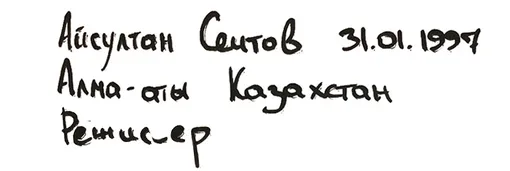 Айсултан Сеитов 31.01.1997
Алма-аты Казахстан
Режиссер